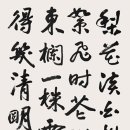 梨花淡白
絮飛时花
東欄一株雪
得幾清明